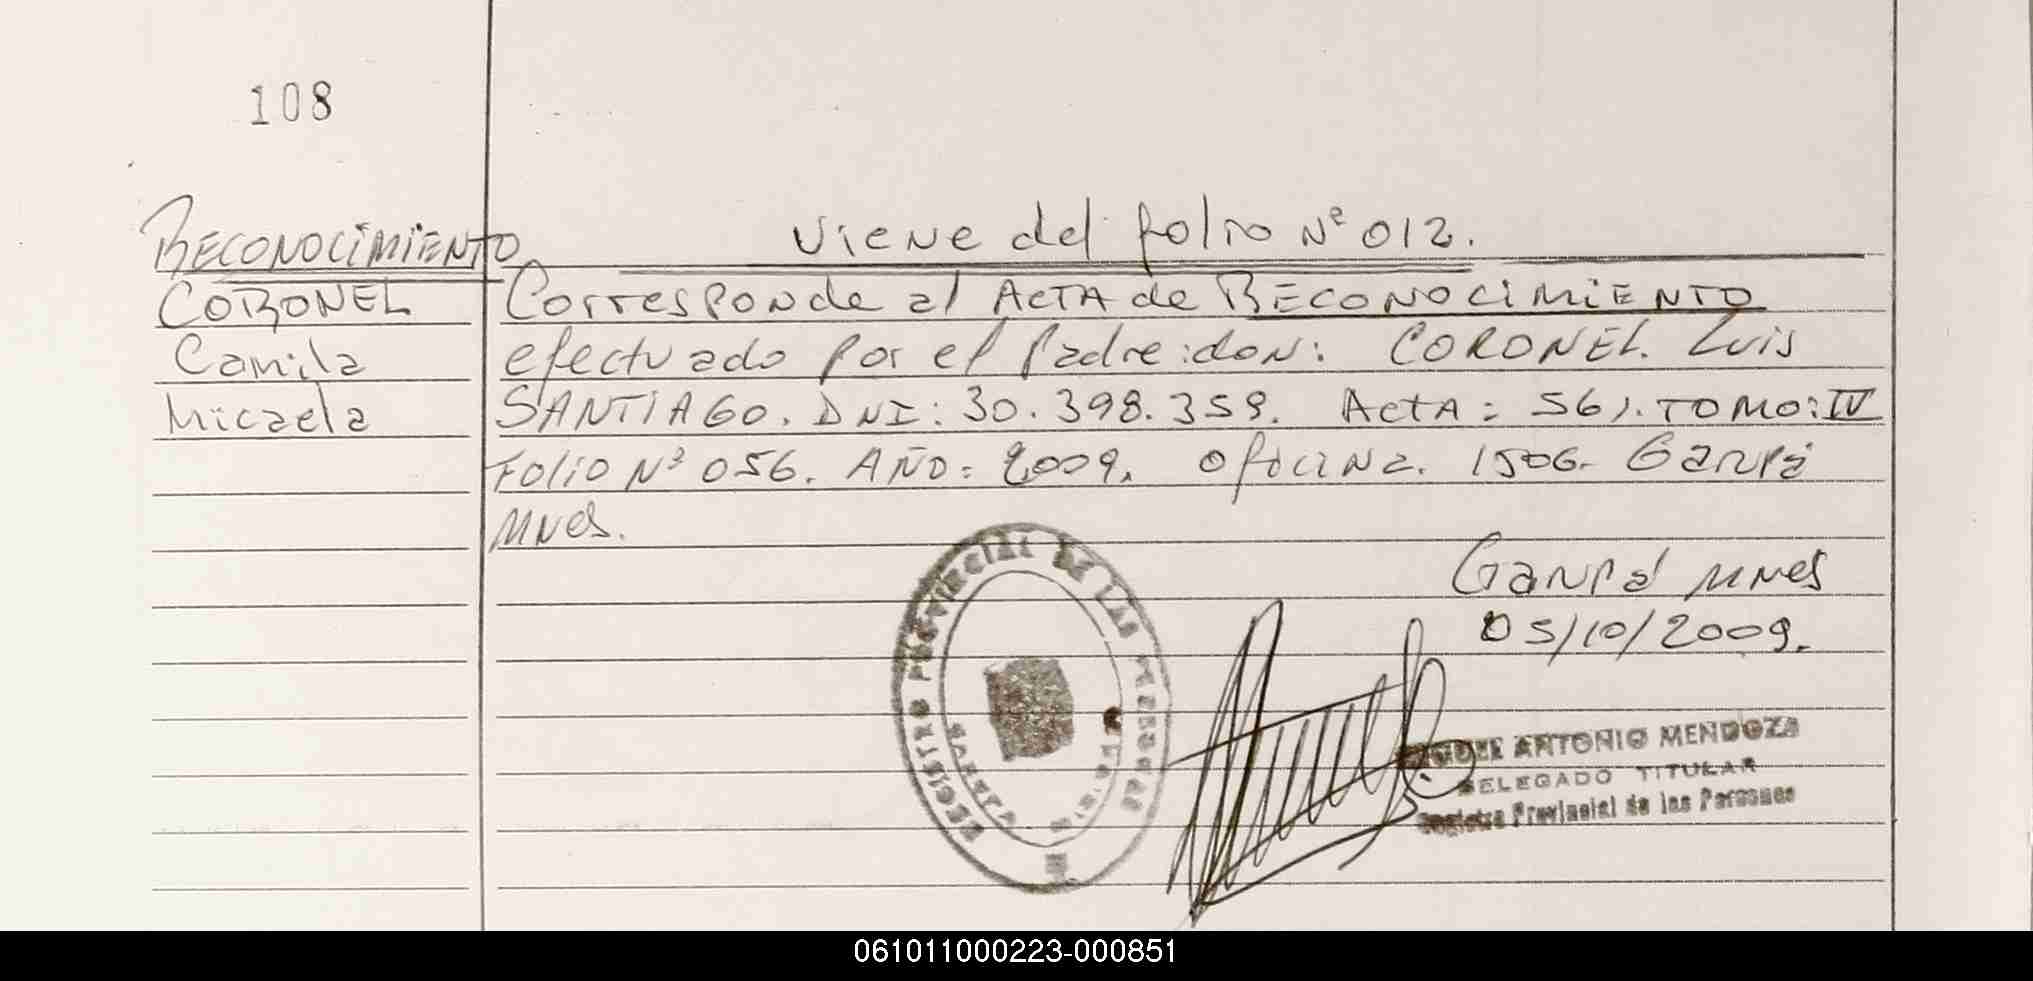 108
RECONOCIMIENTO
CORONEL
Camila
Micaela
Viene del folio Nº 012.
Corresponde al ACTA de RECONOCIMIENTO
efectuado por el padre: don: CORONEL. Luis
SANTIAGO. DNI: 30.398.359. ACTA: 561. TOMO: IV
FOLIO Nº 056. AÑO: 2009. Oficina. 1506. Garupá
Mnes.
Garupá Mnes
05/10/2009.
REGISTRO PROVINCIAL DE LAS PERSONAS
ANTONIO MENDOZA
DELEGADO TITULAR
Registro Provincial de las Personas
061011000223-000851